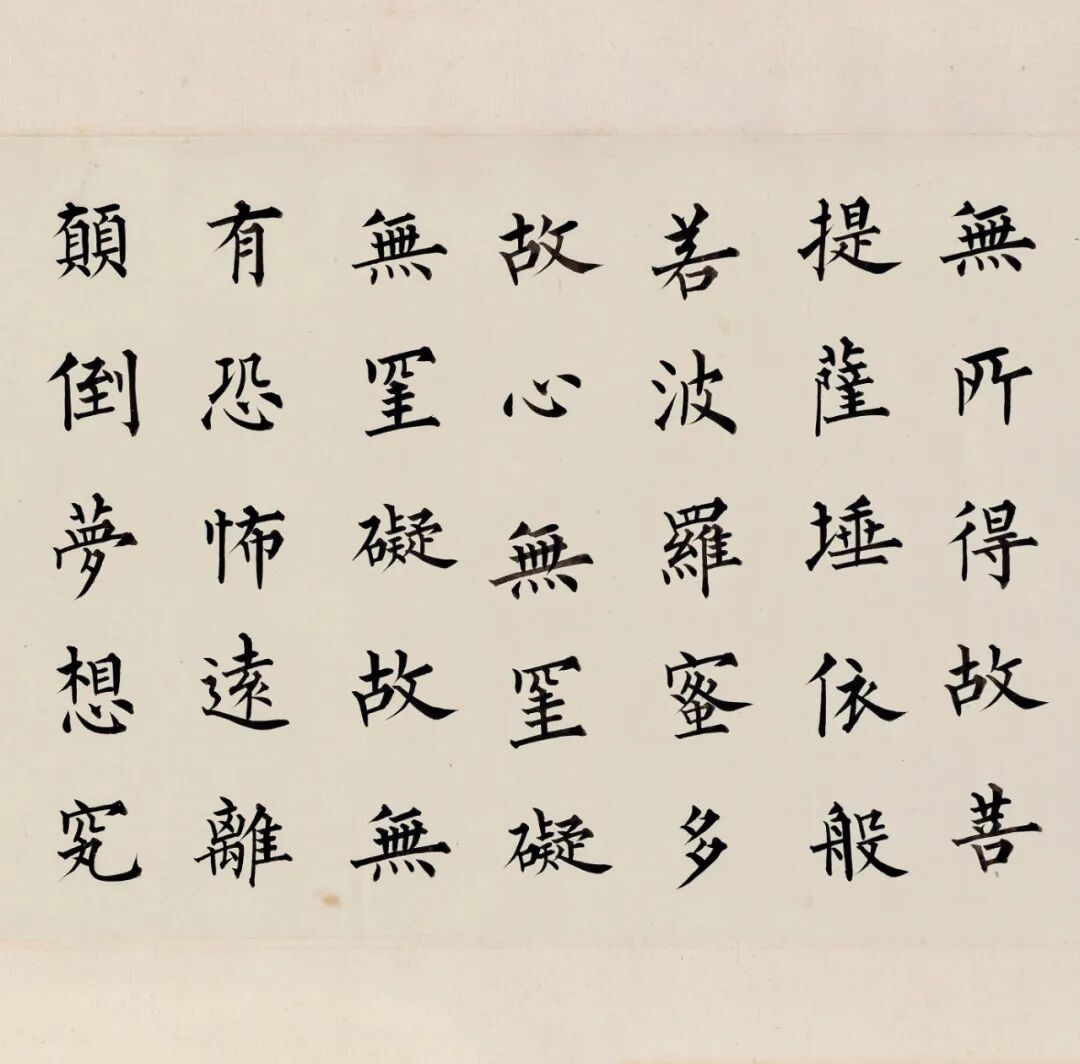 無所得故菩
提薩埵依般
若波羅蜜多
故心無罣礙
無罣礙故無
有恐怖遠離
顛倒夢想究